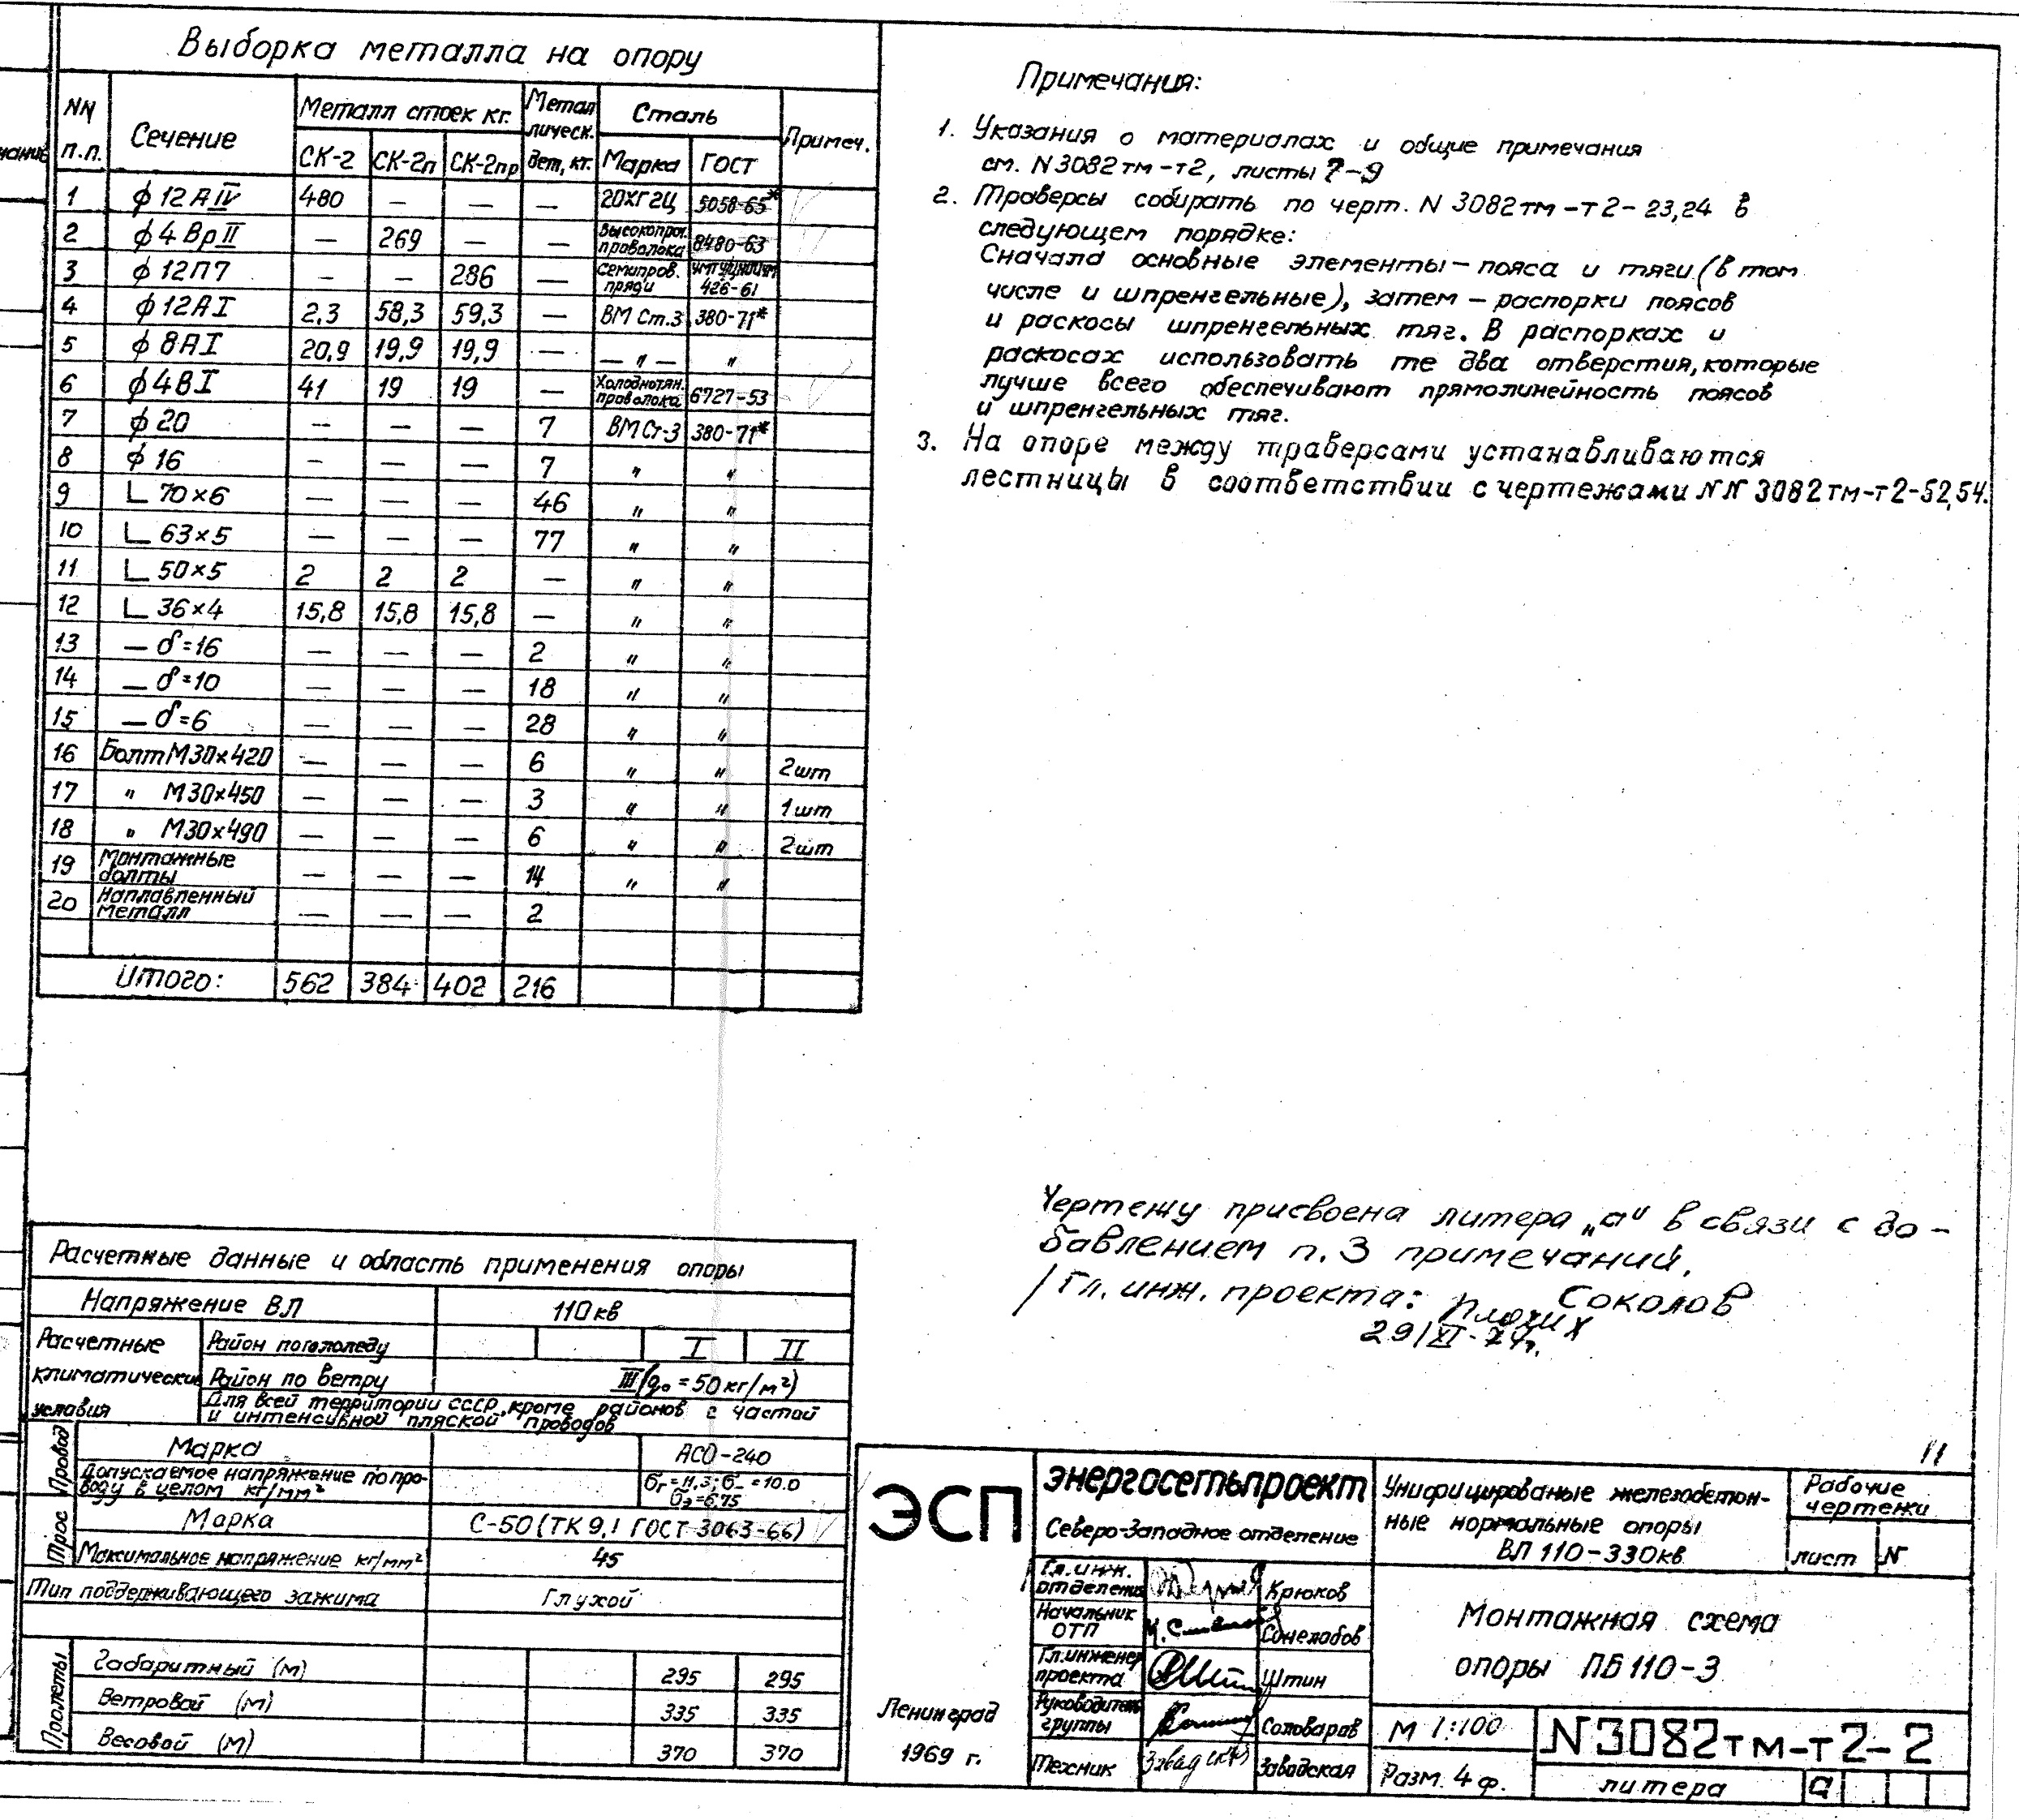 Выборка металла на опору
NN п.п. Сечение Металл стоек кг. Металлическ. дет, кг. Сталь Примеч.
СК-2 СК-2п СК-2пр Марка ГОСТ
1 ϕ12АIV 480 — — — 20ХГ2Ц 5058-65*
2 ϕ4ВрII — 269 — — Высокопроч. проволока 8480-63
3 ϕ12П7 — — 286 — Семипров. пряди 426-61
4 ϕ12АI 2,3 58,3 59,3 — ВМ Ст.3 380-71*
5 ϕ8АI 20,9 19,9 19,9 — — " — "
6 ϕ4ВI 41 19 19 — Холоднотян. проволока 6727-53
7 ϕ20 — — — 7 ВМСт-3 380-71*
8 ϕ16 — — — 7 " "
9 L 70×6 — — — 46 " "
10 L 63×5 — — — 77 " "
11 L 50×5 2 2 2 — " "
12 L 36×4 15,8 15,8 15,8 — " "
13 — δ=16 — — — 2 " "
14 — δ=10 — — — 18 " "
15 — δ=6 — — — 28 " "
16 Болт М30×420 — — — 6 " " 2шт
17 " М30×450 — — — 3 " " 1шт
18 " М30×490 — — — 6 " " 2шт
19 Монтажные болты — — — 14 " "
20 Наплавленный металл — — — 2
Итого: 562 384 402 216
Примечания:
1. Указания о материалах и общие примечания
см. N3082тм-т2, листы 7-9
2. Траверсы собирать по черт. N 3082тм-т2-23,24 в
следующем порядке:
Сначала основные элементы – пояса и тяги (в том
числе и шпренгельные), затем – распорки поясов
и раскосы шпренгельных тяг. В распорках и
раскосах использовать те два отверстия, которые
лучше всего обеспечивают прямолинейность поясов
и шпренгельных тяг.
3. На опоре между траверсами устанавливаются
лестницы в соответствии с чертежами NN 3082тм-т2-52,54.
Чертежу присвоена литера „а" в связи с до-
бавлением п.3 примечаний.
/Гл. инж. проекта: Соколов
29/XI-74г.
Расчетные данные и область применения опоры
Напряжение ВЛ 110кв
Расчетные климатические условия
Район по гололеду I II
Район по ветру III (q₀=50кг/м²)
Для всей территории СССР, кроме районов с частой
и интенсивной пляской проводов
Провод Марка АСО-240
Допускаемое напряжение по про-
воду в целом кг/мм² σг=11,3; σ_=10.0
σэ=6,75
Трос Марка С-50 (ТК 9,1 ГОСТ 3063-66)
Максимальное напряжение кг/мм² 45
Тип поддерживающего зажима Глухой
Пролеты Габаритный (м) 295 295
Ветровой (м) 335 335
Весовой (м) 370 370
11
ЭСП
Ленинград
1969 г.
энергосетьпроект
Северо-Западное отделение
Гл. инж. отделения Крюков
Начальник ОТП
Гл.инженер проекта Штин
Руководитель группы
Техник Заводская
Унифицированые железобетон-
ные нормальные опоры
ВЛ 110-330кв
Рабочие чертежи
лист N
Монтажная схема
опоры ПБ110-3
М 1:100
Разм. 4ф.
N3082тм-т2-2
литера а